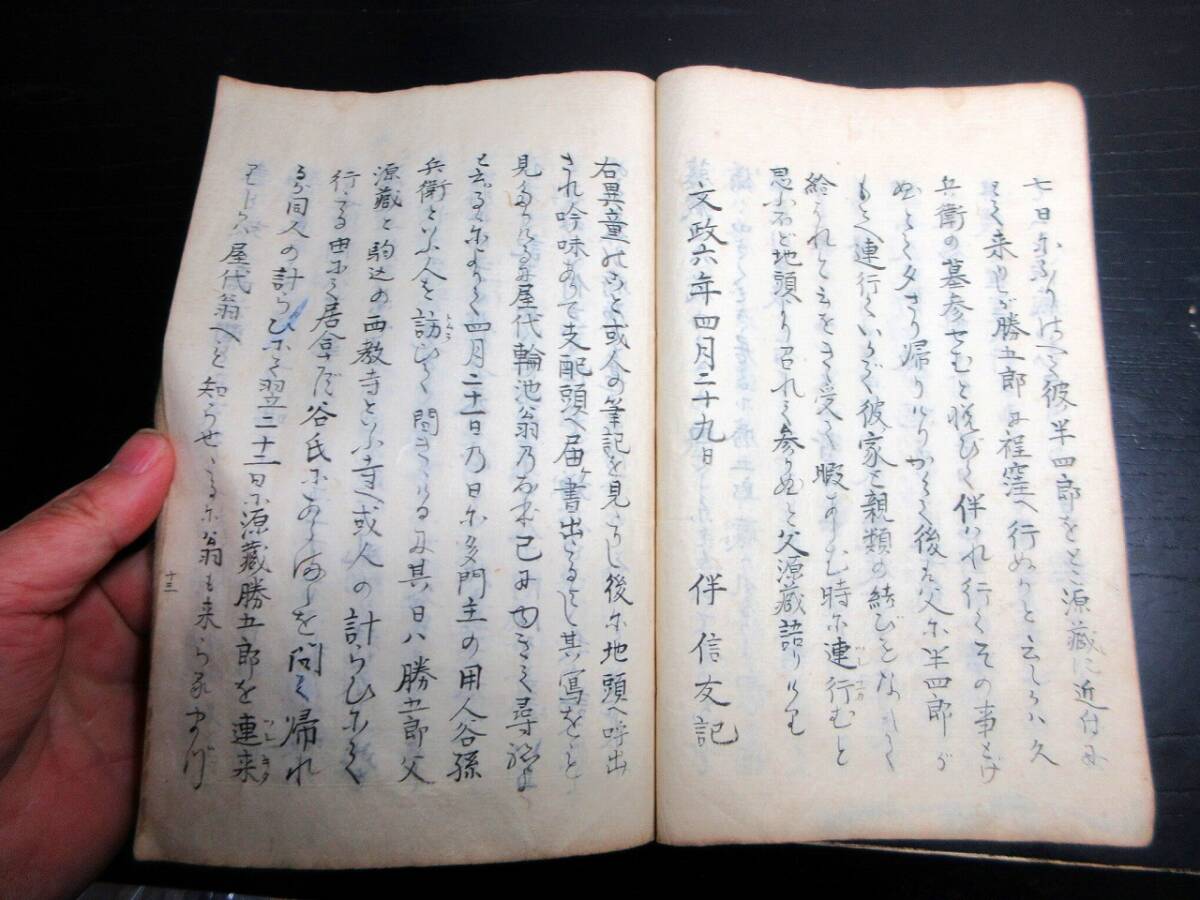 七日になりけれバ彼半四郎をとて源蔵に近付に
とて来りしが勝五郎に程窪へ行ぬかと云しかハ久
兵衛の墓参せむと悦びて伴ハれ行てその事とげ
ぬとて夕さり帰りけりかくて後ハ父に半四郎が
もとへ連行ていかで彼家と親類の結びをなしてく
給われと云をき受て暇あらむ時に連行むと
思ふほど地頭より召れて参りぬと父源蔵語りけり
文政六年四月二十九日 伴信友記
右異童のこと或人の筆記を見たりし後に地頭へ呼出
され吟味ありて支配頭へ届書出たるよし其写をと
見たりけるに屋代輪池翁乃がり已にゆきて尋ね
せるによりて四月二十一日乃日に多門主の用人谷孫
兵衛といふ人を訪ひて問きゝけるに其日ハ勝五郎父
源蔵と駒込の西教寺といふ寺へ或人の計らひにて
行たる由にて居合さず谷氏にあらましを問て帰れ
るが同人の計らひにて翌二十二日に源蔵勝五郎を連来
屋代翁へと知らせたるに翁も来られまづ
十三